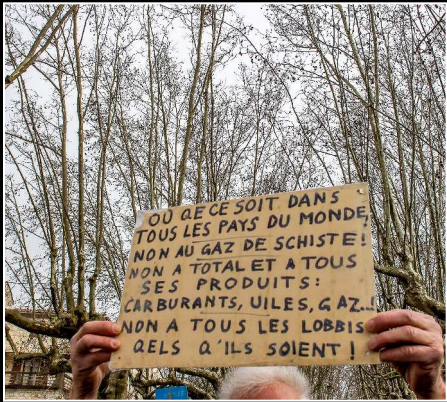 OÙ QE CE SOIT DANS
TOUS LES PAYS DU MONDE,
NON AU GAZ DE SCHISTE!
NON A TOTAL ET A TOUS
SES PRODUITS:
CARBURANTS, UILES, GAZ..!
NON A TOUS LES LOBBIS
QELS Q'ILS SOIENT!